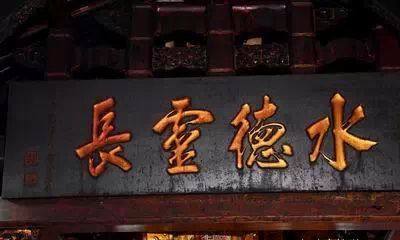 水德靈長